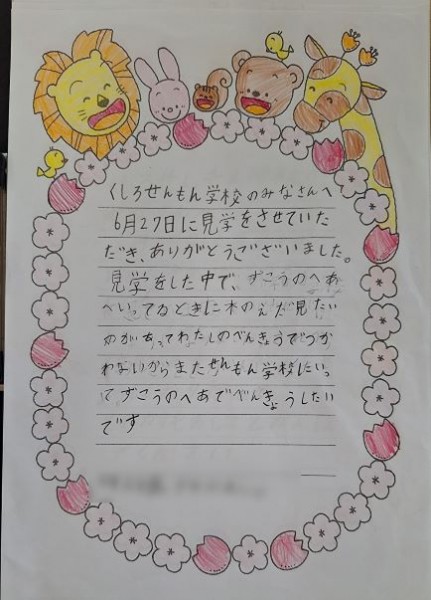 くしろせんもん学校のみなさんへ
6月27日に見学をさせていた
だき、ありがとうございました。
見学をした中で、ずこうのへあ
へいってるときに木のえだ見たい
のがあってわたしのべんきょうでつか
わないからまたせんもん学校にいっ
てずこうのへあでべんきょうしたい
です